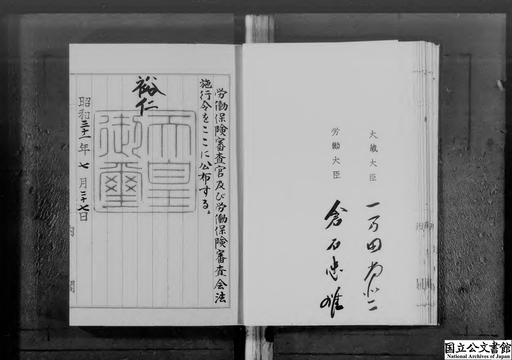 労働保険審査官及び労働保険審査会法
施行令をここに公布する。
裕仁
天皇
御璽
昭和三十一年七月二十七日
大蔵大臣
一万田尚登
労働大臣
倉石忠雄
国立公文書館
National Archives of Japan